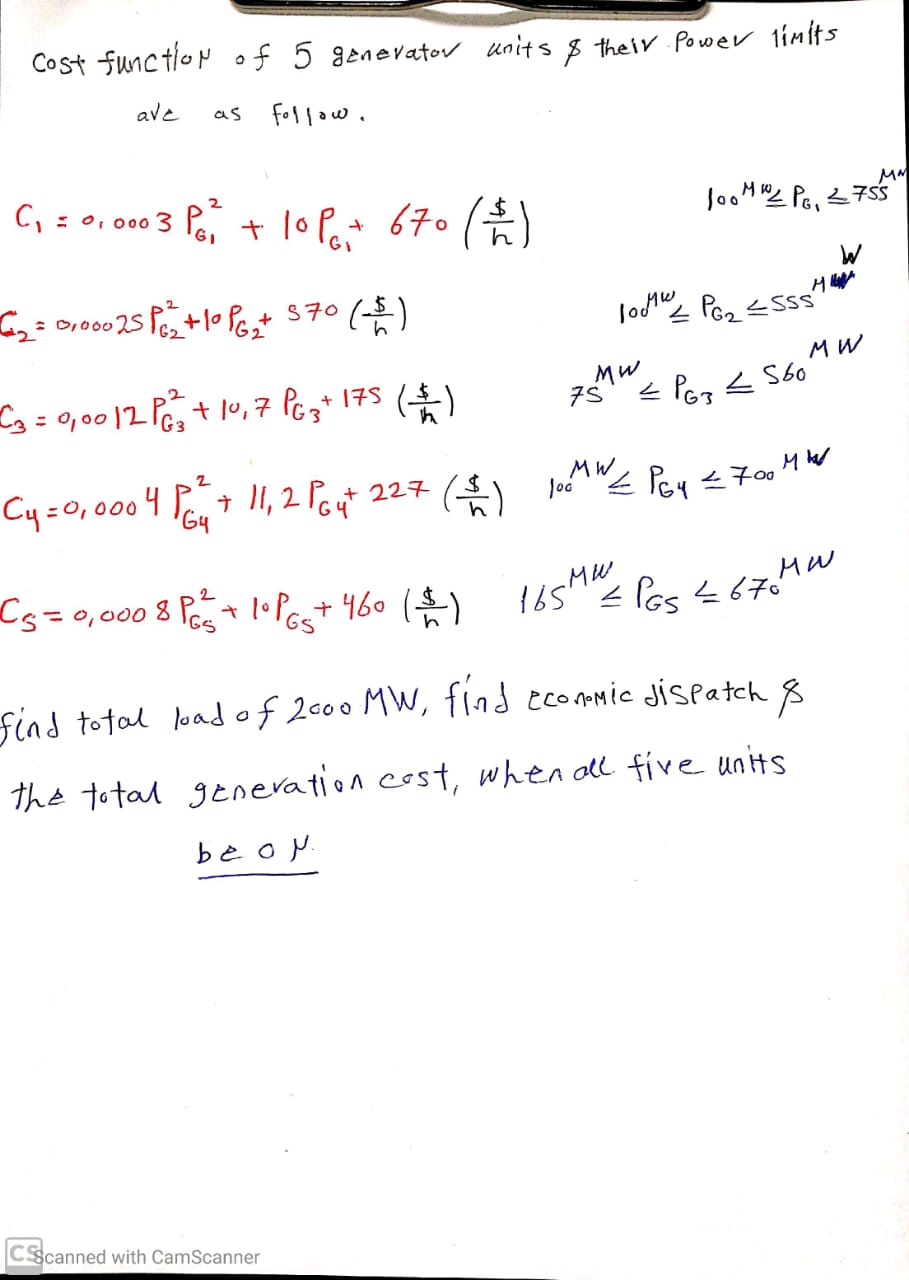 Cost function of 5 generator units & their Power limits
are as follow.
C₁ = 0,0003 P²G₁ + 10 PG₁ + 670 ($/h) 100 MW ≤ PG₁ ≤ 755 MW
C₂ = 0,00025 P²G₂ + 10 PG₂ + 570 ($/h) 100 MW ≤ PG₂ ≤ 555 MW
C₃ = 0,0012 P²G₃ + 10,7 PG₃ + 175 ($/h) 75 MW ≤ PG₃ ≤ 560 MW
C₄ = 0,0004 P²G₄ + 11,2 PG₄ + 227 ($/h) 100 MW ≤ PG₄ ≤ 700 MW
C₅ = 0,0008 P²G₅ + 10 PG₅ + 460 ($/h) 165 MW ≤ PG₅ ≤ 670 MW
find total load of 2000 MW, find economic dispatch &
the total generation cost, when all five units
be on.
CS Scanned with CamScanner